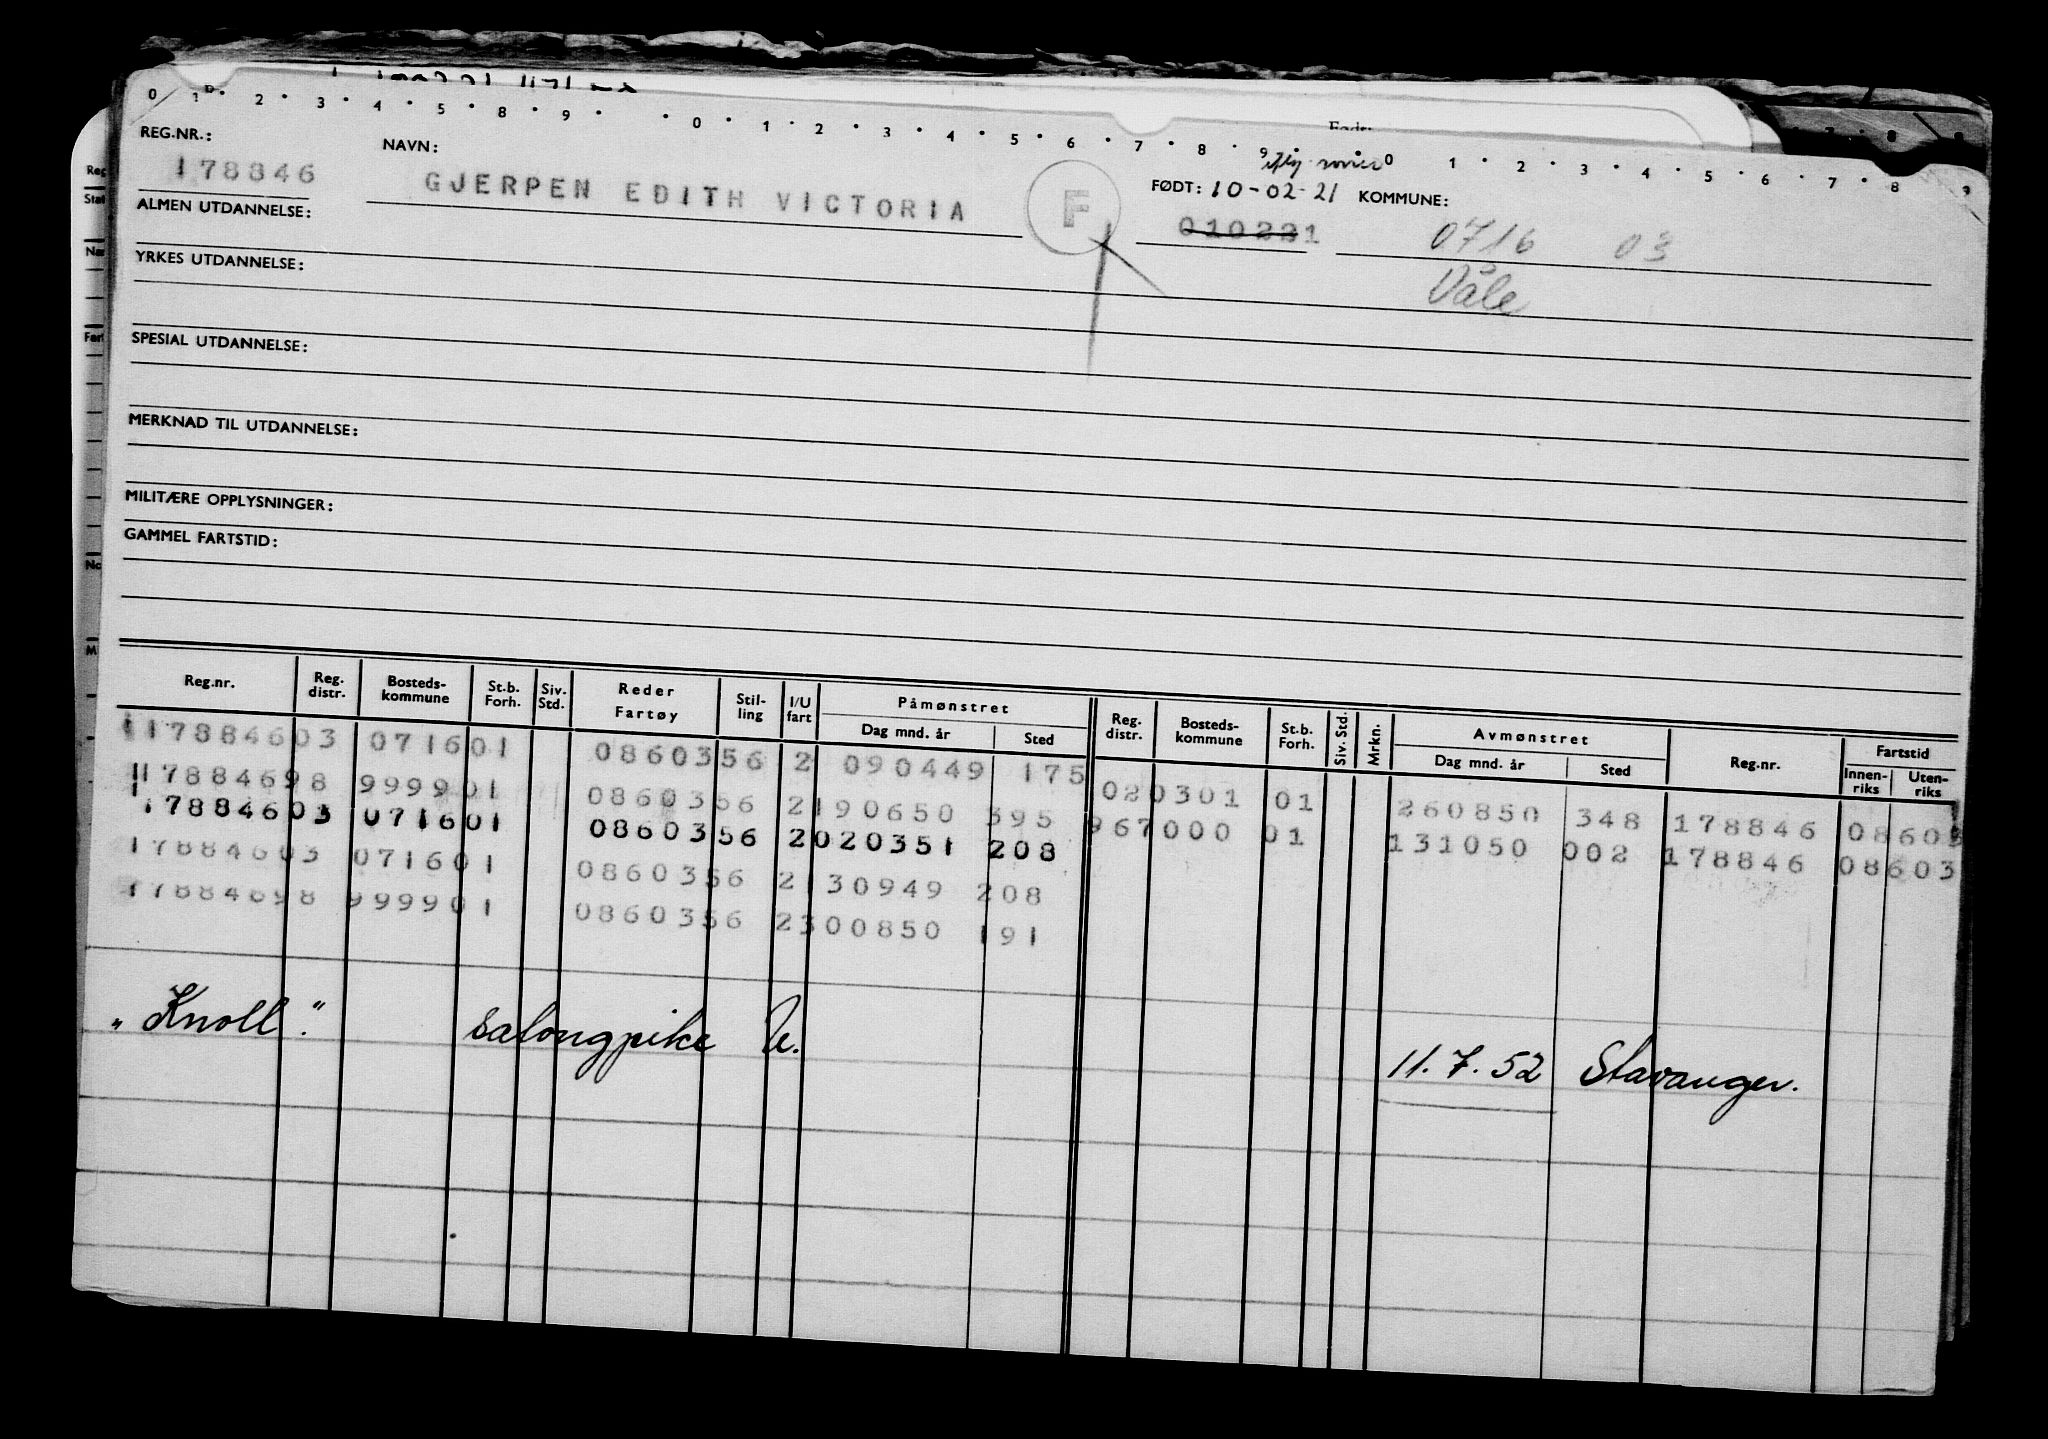 0 1 D. 2 . 3 . 4 . 5 . 8 . 9 . . 0 . 1 . 2 . 3 . 4 . 5 . 6 . 7 . 8 . 9 . 0 1 . 2 . 3 . 4 . 5 . 6 . 7 . 8 9
REG.NR.: NAVN:
178846 GJERPEN EDITH VICTORIA F FØDT: 10-02-21 KOMMUNE:
010221 0716 03
Våle
ALMEN UTDANNELSE:
YRKES UTDANNELSE:
SPESIAL UTDANNELSE:
MERKNAD TIL UTDANNELSE:
MILITÆRE OPPLYSNINGER:
GAMMEL FARTSTID:
Reg.nr. Reg. distr. Bosteds-kommune St.b. Forh. Siv. Std. Reder Fartøy Stil-ling I/U fart Påmønstret Dag mnd. år Sted Reg. distr. Bosteds-kommune St.b. Forh. Siv. Std. Mrkn. Avmønstret Dag mnd. år Sted Reg.nr. Fartstid Innen-riks Uten-riks
17884603 071601 0860356 2 090449 175 020301 01 260850 348 178846 08603
17884698 999901 0860356 2190650 395 967000 01 131050 002 178846 08603
17884603 071601 0860356 2020351 208
17884603 071601 0860356 2130949 208
17884698 999901 0860356 2300850 191
"Knoll". salongpike U. 11.7.52 Stavanger.